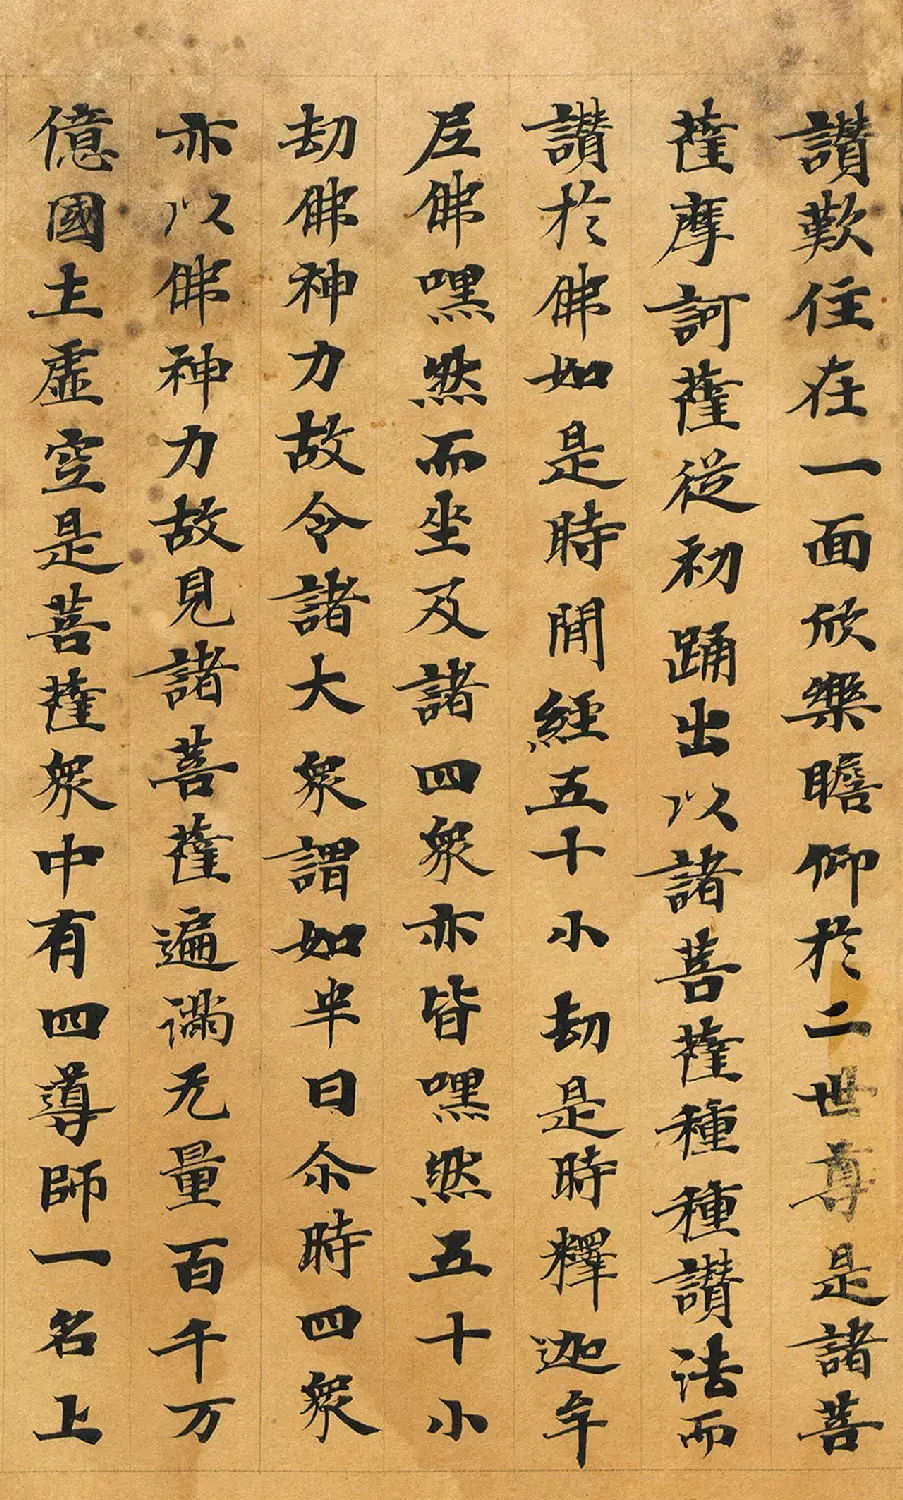 讃歎住在一面欣樂瞻仰於二世尊是諸菩
薩摩訶薩從初踊出以諸菩薩種種讃法而
讃於佛如是時閒經五十小劫是時釋迦牟
尼佛嘿然而坐及諸四衆亦皆嘿然五十小
劫佛神力故令諸大衆謂如半日尒時四衆
亦以佛神力故見諸菩薩遍滿无量百千万
億國土虛空是菩薩衆中有四導師一名上